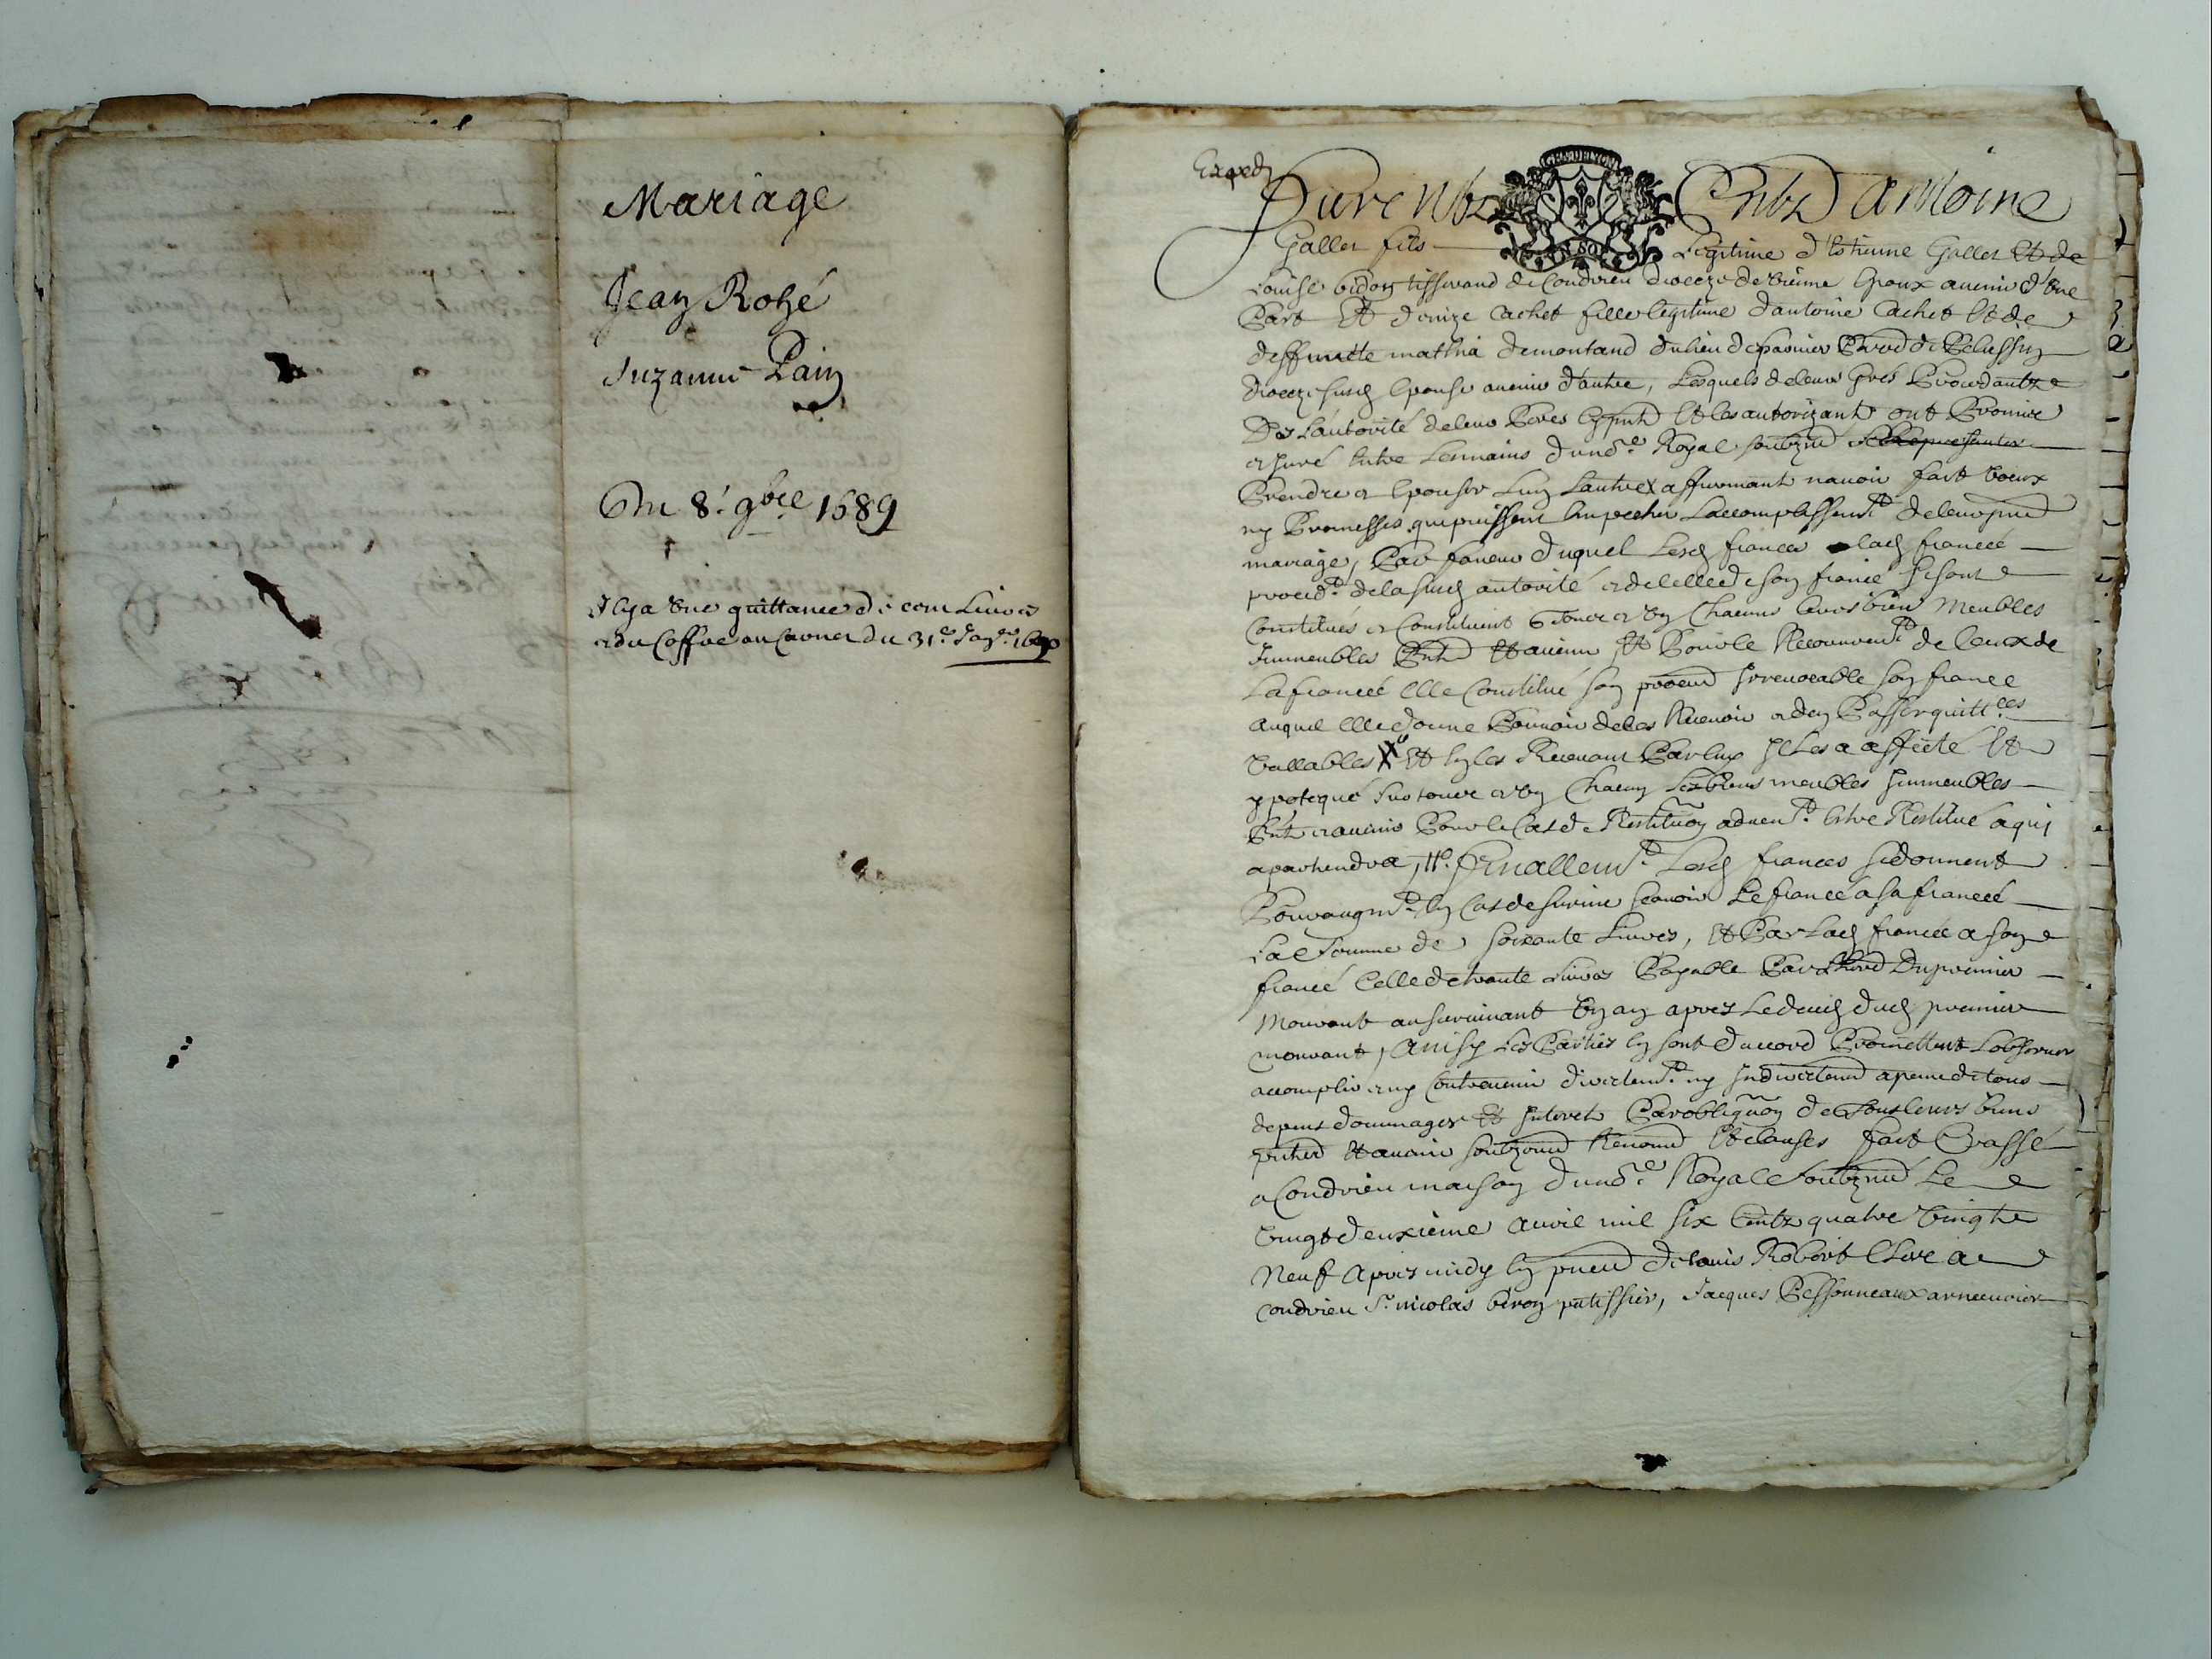 Mariage
Jean Rohé
Suzanne Pain
Du 8.e 9bre 1689
Il ya une quittance de cent Livres
et du Coffre au Carnet du 31.e Janv.r 1690
Exped
furent pntz Entz Antoine
GEN DE LYON
Galler fils Legitime d'Estienne Galler Et de
Louise bidon tisserand de Condrieu dioceze de vienne Epoux avenir d'Une
Part Et denize Cachet fille legitime d'antoine Cachet Et de
deffuncte mathia demontand du lieu de Parr de Pelussin
dioceze susd Epouse avenir d'autre, Lesquels de leurs Grés Procedantz
De L'autorité de leurs Peres Et les autorizants ont Promis
et juré Entre Les mains du no.re Royal soubzné
Prendre et Epouser Lun Lautre X affirmant navoir fait voeux
ny Promesses qui puissent Empecher Laccomplissem.t de leur pnt
mariage, En faveur duquel Lesd fiances lad fiancée
proced.t de la susd autorité et de celle de son fiancé se sont
Constitués et Constituent tous et un Chacuns leurs biens Meubles
Immeubles Pntz Et avenir, Et Pour le Recouvrem.t de Ceux de
La fiancée Elle Constitue son procur Irrevocable son fiancé
auquel Elle donne Pouvoir de les Recevoir et den Passer quitt.ces
vallables X Et En les Recevant Par luy Il Les a affecté Et
ypotequé sur tous et un Chacun ses biens meubles Immeubles
Pntz et avenir Pour le Cas de Restituon advent.t Estre Restitué a qui
apartiendra, It. finallem.t Lesd fiances se donnent
Pour augm.t En Cas de survie scavoir Le fiancé a sa fiancée
La Somme de soixante Livres, Et Par Lad fiancée a son
fiancé Celle de trante Livres Payable Par Lhered Du premier
Mourant au survivant Un an apres Le deceds dud premier
mourant, Ainsy Les Parties En sont daccord Promettent Lobserver
accomplir et ny Contrevenir directem.t ny Indirectemt a peine de tous
depens dommages Et Interets Par obliguon de Tous leurs biens
pntz Et avenir soubzmis Renond Et clauses fait Et Passé
a Condrieu maison du no.re Royal soubzné Le
vingt deuxieme avril mil six Centz quatre vingtz
Neuf Apres midy En pnce de Louis Robert Clerc a
Condrieu S.r nicolas biron patissier, Jacques Pessonneaux